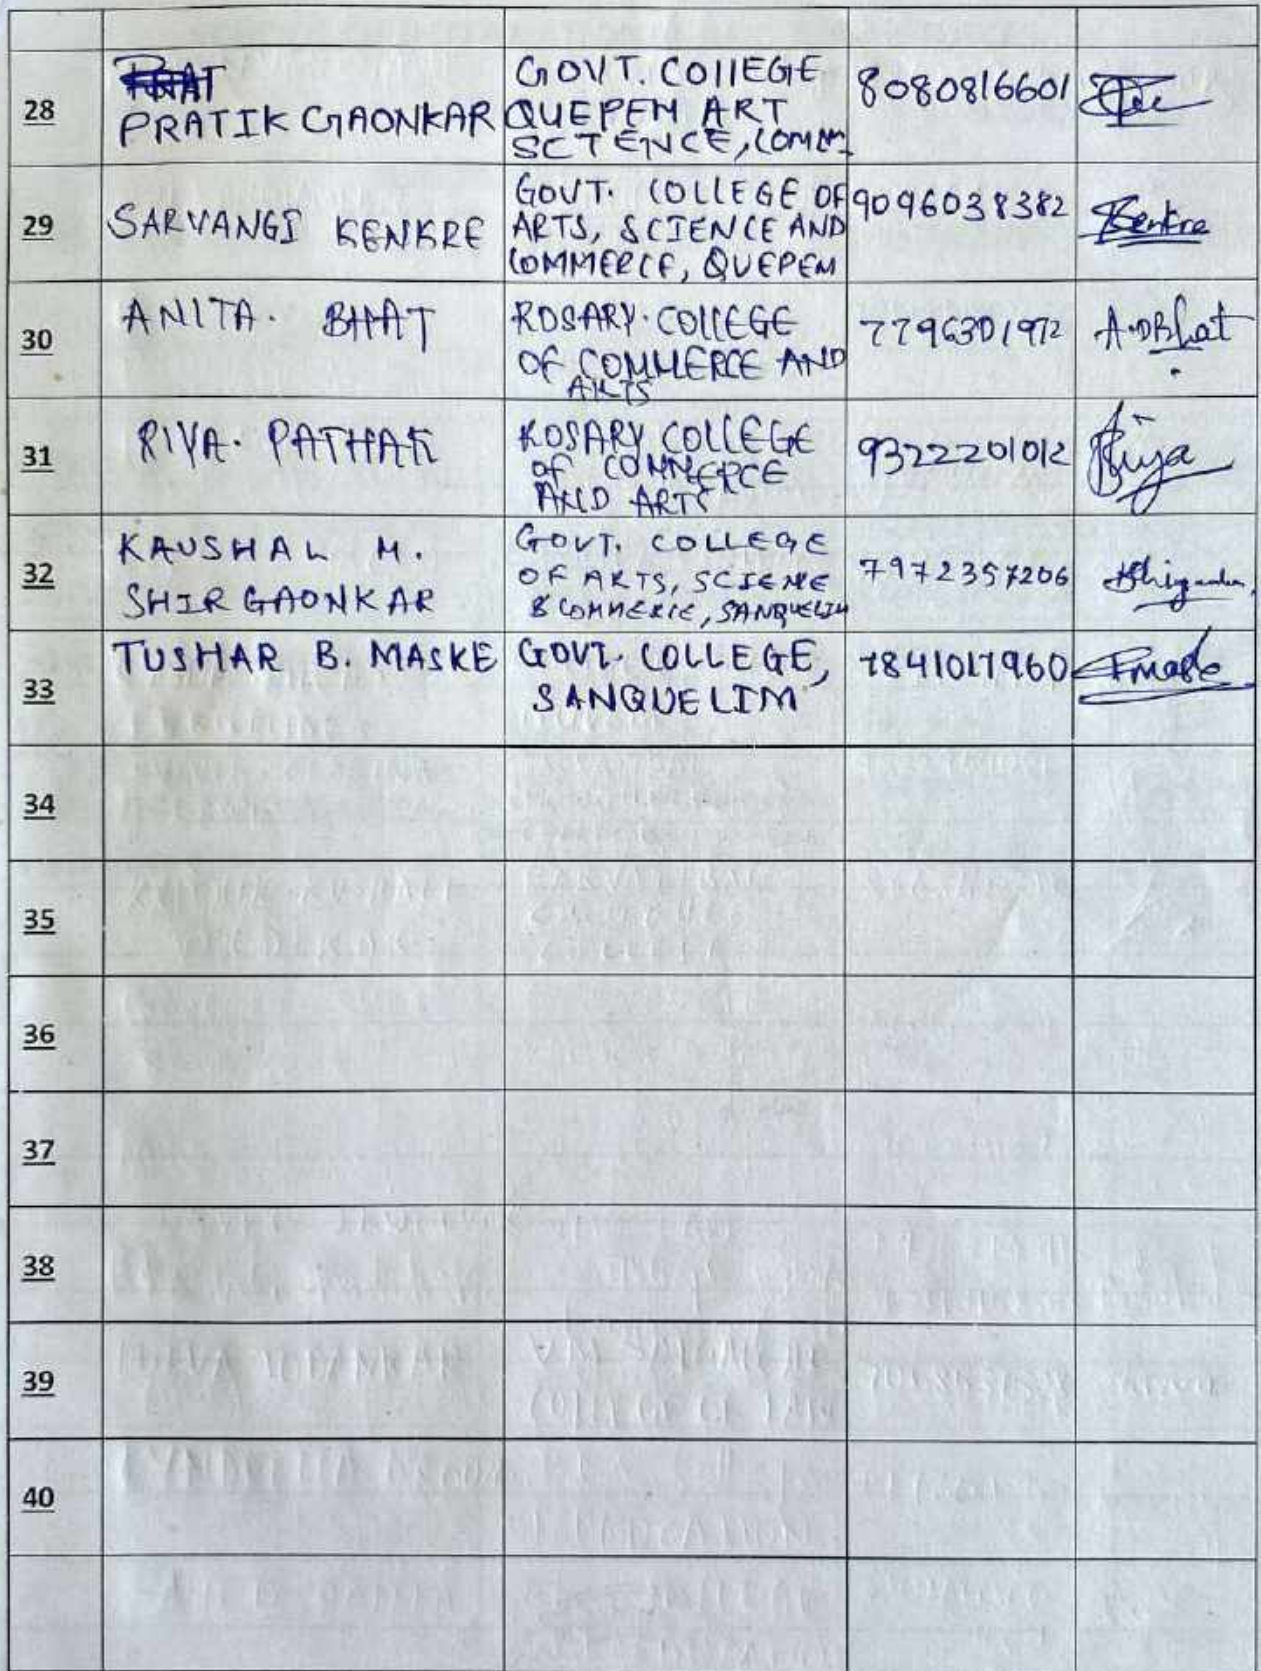 28
PRATIK GAONKAR
GOVT. COllEGE
QUEPEM ART
SCTENCE, COMM
8080816601
29
SARVANGI KENKRE
GOVT. COLLEGE OF
ARTS, SCIENCE AND
COMMERCE, QUEPEM
9096038382
Kenkre
30
ANITA. BHAT
ROSARY. COLLEGE
OF COMMERCE AND
ARTS
7796301972
A.D.Bhat
31
RIYA. PATHAK
ROSARY COLLEGE
OF COMMERCE
AND ARTS
9322201012
Riya
32
KAUSHAL M.
SHIRGAONKAR
GOVT. COLLEGE
OF ARTS, SCIENE
& COMMERCE, SANQUELIM
7972357206
33
TUSHAR B. MASKE
GOVT. COLLEGE,
SANQUELIM
7841017960
34
35
36
37
38
39
40